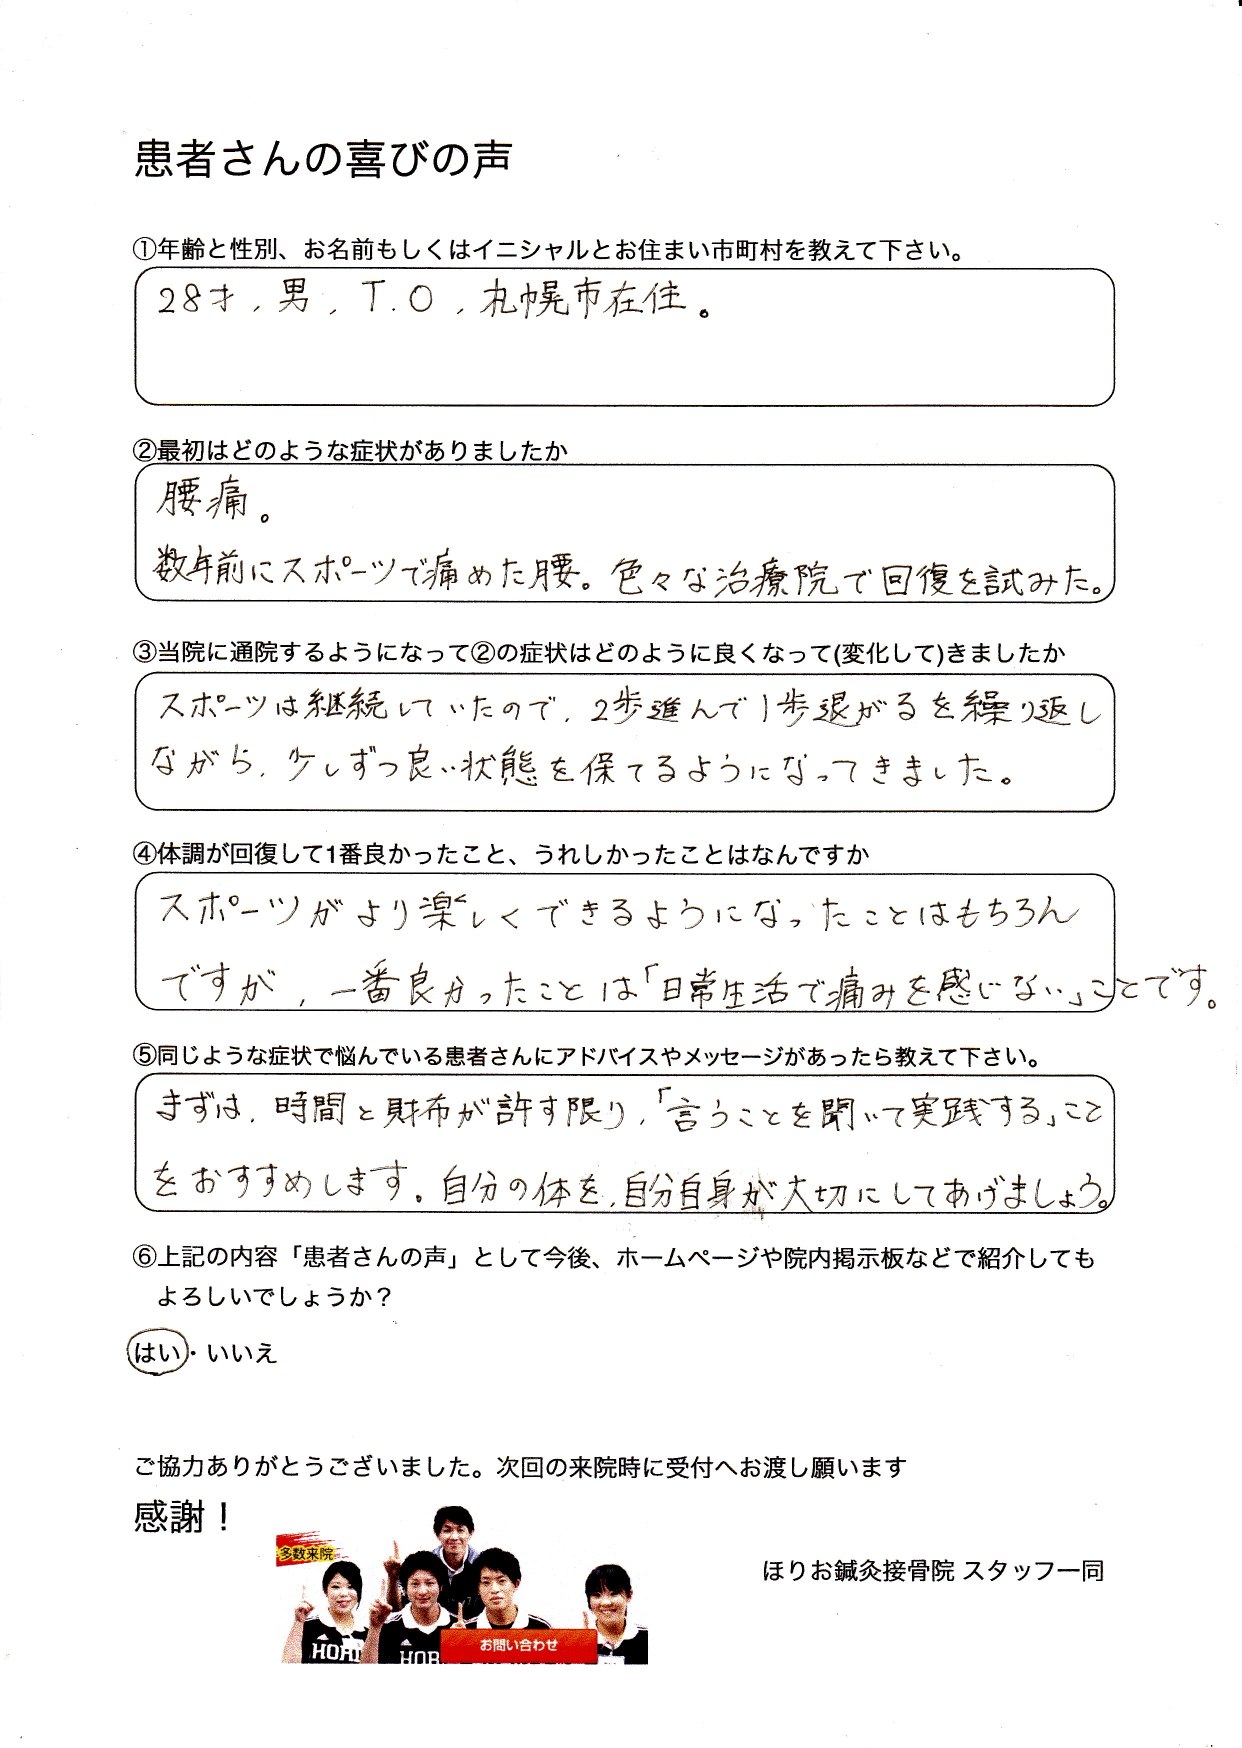 患者さんの喜びの声
①年齢と性別、お名前もしくはイニシャルとお住まい市町村を教えて下さい。
28才，男，T.O，札幌市在住。
②最初はどのような症状がありましたか
腰痛。
数年前にスポーツで痛めた腰。色々な治療院で回復を試みた。
③当院に通院するようになって②の症状はどのように良くなって(変化して)きましたか
スポーツは継続していたので，2歩進んで1歩退がるを繰り返し
ながら，少しずつ良い状態を保てるようになってきました。
④体調が回復して1番良かったこと、うれしかったことはなんですか
スポーツがより楽しくできるようになったことはもちろん
ですが，一番良かったことは「日常生活で痛みを感じない」ことです。
⑤同じような症状で悩んでいる患者さんにアドバイスやメッセージがあったら教えて下さい。
まずは，時間と財布が許す限り，「言うことを聞いて実践する」こと
をおすすめします。自分の体を，自分自身が大切にしてあげましょう。
⑥上記の内容「患者さんの声」として今後、ホームページや院内掲示板などで紹介しても
よろしいでしょうか？
はい・いいえ
ご協力ありがとうございました。次回の来院時に受付へお渡し願います
感謝！
多数来院
ほりお鍼灸接骨院 スタッフ一同
お問い合わせ
HORI
HOR